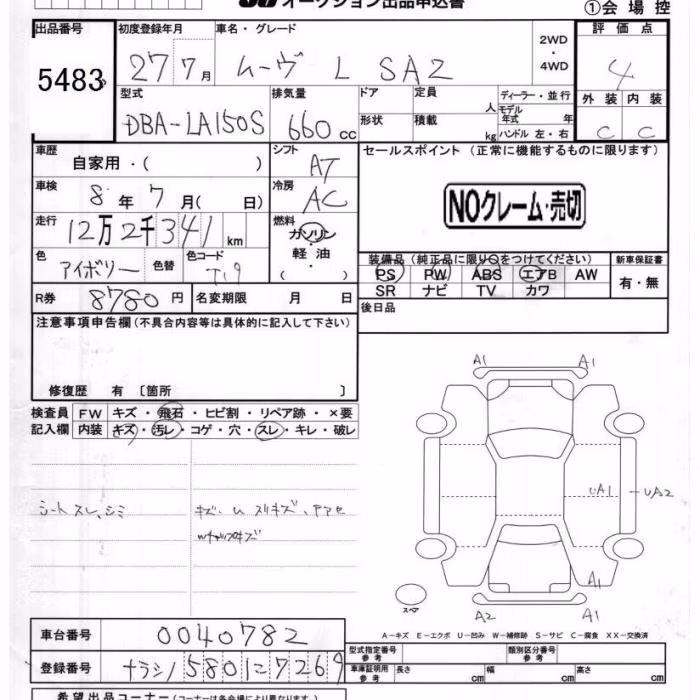 オークション出品申込書
①会場控
出品番号 初度登録年月 車名・グレード 2WD・4WD 評価点
5483 27 7月 ムーヴ L SA2 4
型式 排気量 ドア 定員 人 ディーラー・並行 外装 内装
DBA-LA150S 660cc 形状 積載 kg モデル年式 年 ハンドル 左・右 C C
車歴 自家用・( ) シフト AT セールスポイント (正常に機能するものに限ります)
車検 8年7月(日) 冷房 AC NOクレーム・売切
走行 12万2千341km 燃料 ガソリン・軽油・( )
色 アイボリー 色替 色コード T19
装備品(純正品に限り○をつけてください) 新車保証書
PS PW ABS エアB AW 有・無
SR ナビ TV カワ
R券 8780円 名変期限 月 日 後日品
注意事項申告欄(不具合内容等は具体的に記入して下さい)
修復歴 有〔箇所 〕
検査員記入欄 FW キズ・飛石・ヒビ割・リペア跡・×要
内装 キズ・汚レ・コゲ・穴・スレ・キレ・破レ
シートスレ、シミ
A1 A1
UA1 UA2
A1
A2 A1
スペア
A-キズ E-エクボ U-凹み W-補修跡 S-サビ C-腐食 XX-交換済
車台番号 0040782
登録番号 ナラシ1 580 に 7269
型式指定番号 参考 類別区分番号 参考
車庫証明用 参考 長さ cm 幅 cm 高さ cm
希望出品コーナー(コーナーは各会場により異なります)